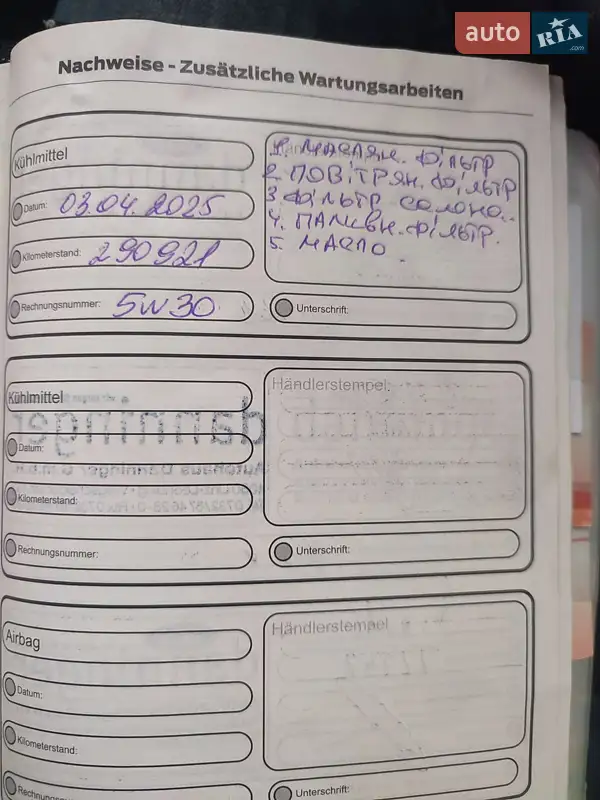 auto RIA .com
Nachweise - Zusätzliche Wartungsarbeiten
Kühlmittel
Datum: 03.04.2025
Kilometerstand: 290921
Rechnungsnummer: 5W30
1. МАСЛЯН. ФІЛЬТР
2. ПОВІТРЯН. ФІЛЬТР
3. ФІЛЬТР САЛОНО..
4. ПАЛИВН. ФІЛЬТР.
5. МАСЛО.
Unterschrift:
Kühlmittel
Datum:
Kilometerstand:
Rechnungsnummer:
Händlerstempel:
Unterschrift:
Airbag
Datum:
Kilometerstand:
Händlerstempel
Unterschrift: